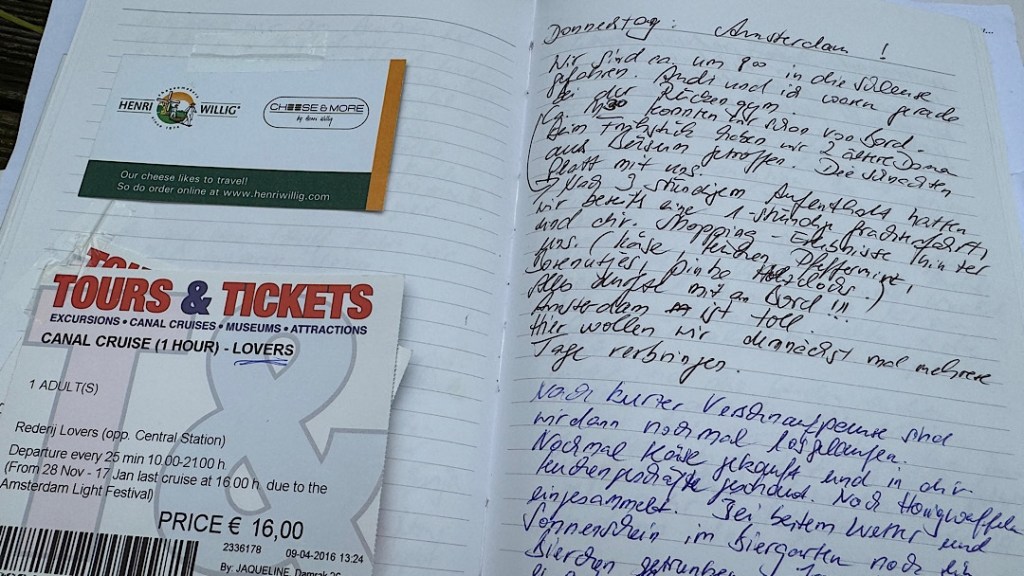 HENRI WILLIG
CHEESE & MORE
by henri willig
Our cheese likes to travel!
So do order online at www.henriwillig.com
TOURS & TICKETS
EXCURSIONS • CANAL CRUISES • MUSEUMS • ATTRACTIONS
CANAL CRUISE (1 HOUR) - LOVERS
1 ADULT(S)
Rederij Lovers (opp. Central Station)
Departure every 25 min 10.00-2100 h.
(From 28 Nov - 17 Jan last cruise at 16.00 h. due to the
Amsterdam Light Festival)
PRICE € 16,00
2336178 09-04-2016 13:24
By: JAQUELINE, Damrak 26
Donnerstag: Amsterdam!
Wir sind ca. um 800 in die Schleuse
gefahren. Andi und ich waren gerade
bei der Rückengym.
konnten wir schon von Bord.
Beim Frühstück haben wir 2 ältere Damen
aus Büsum getroffen. Die schnackten
Platt mit uns.
Nach 3 stündigem Aufenthalt hatten
wir bereits eine 1-stündige Grachtenfahrt,
und div. Shopping-Erlebnisse hinter
uns. (Käse, Pfefferminz,
Alles durfte mit an Bord!!!
Amsterdam ist toll.
Hier wollen wir demnächst mal mehrere
Tage verbringen.
Nach kurzer Verschnaufpause sind
wir dann nochmal losgelaufen.
Nochmal Käse gekauft und in div.
geschaut. Noch Honigwaffeln
eingesammelt. Bei bestem Wetter und
Sonnenschein im Biergarten noch ein
Bierchen getrunken